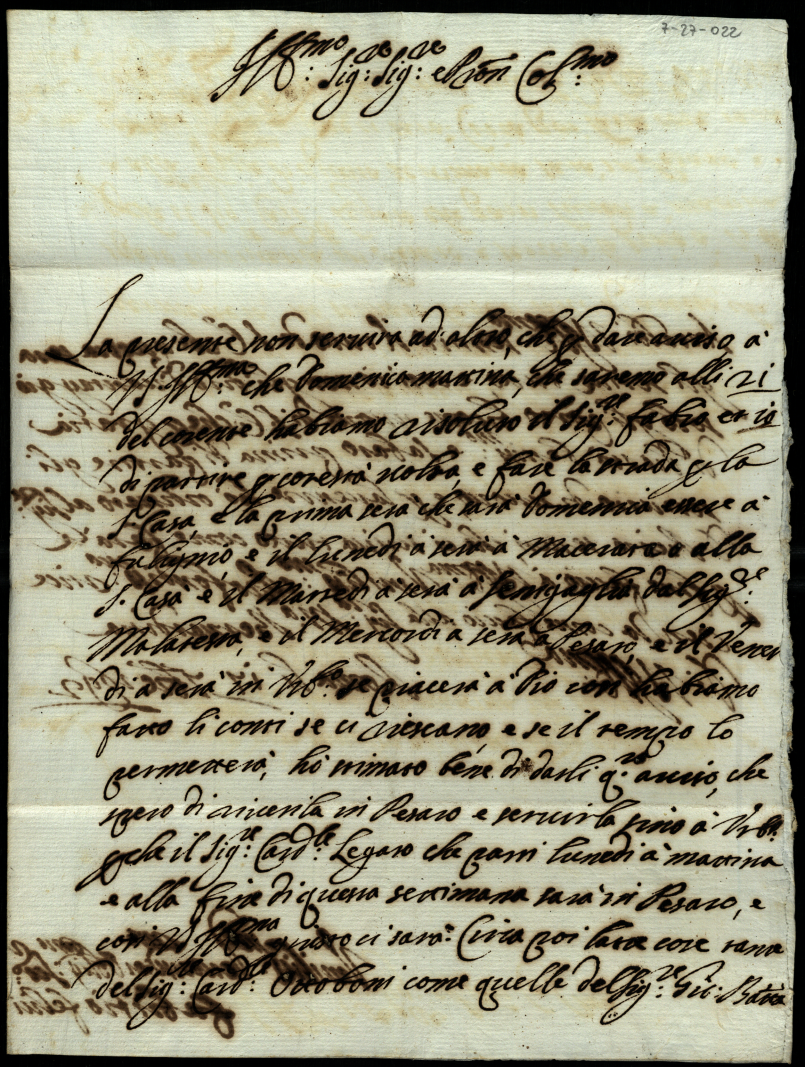 7-27-022
Ill:mo Sig:re Sig:re e Pron Col:mo
La presente non servirà ad altro, che p dare aviso à
V.S. Ill:ma che Domenica mattina, che saremo alli 21
del corente habiamo risoluto il Sig:re Fabio et io
di partire p cotesta volta, e fare la strada p la
S. Casa, e la prima sera che sarà Domenica essere à
Fuligno, e il lunedì à sera à Macerata o alla
S. Casa e il Martedì à sera à Senigaglia dal Sig:re
Malatesta, e il Mercordì à sera à Pesaro, e il Vener
dì à sera in Urb:o se piacerà à Dio così habiamo
fatto li conti se ci riescano, e se il tempo lo
permetterà, hò stimato bene di darli q:to aviso, che
spero di riverirla in Pesaro e servirla sino à Urb:o
p che il Sig:re Card:le Legato che partì lunedì à mattina
e alla fine di questa settimana sarà in Pesaro, e
così V.S. Ill:ma ci sarà: Circa poi le cose tanto
del Sig:re Card:le Ottoboni come quelle del Sig:re Gio: Batta